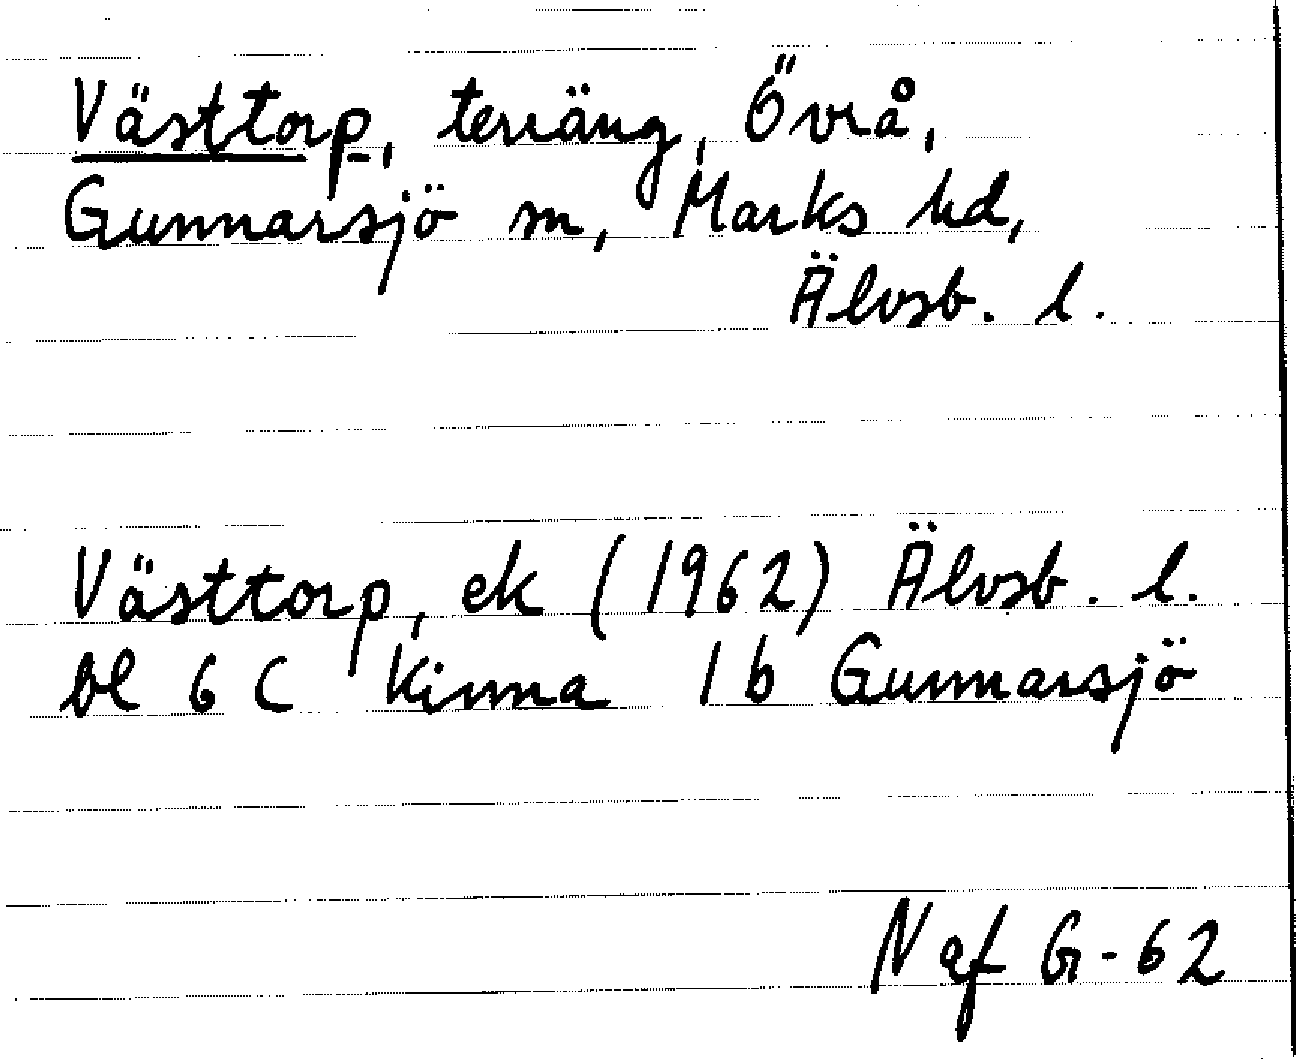 Västtorp, terräng, Övrå,
Gunnarsjö sn, Marks hd,
Älvsb. l.
Västtorp, ek (1962) Älvsb. l.
bl 6 C Kinna 1 b Gunnarsjö
Naf G-62